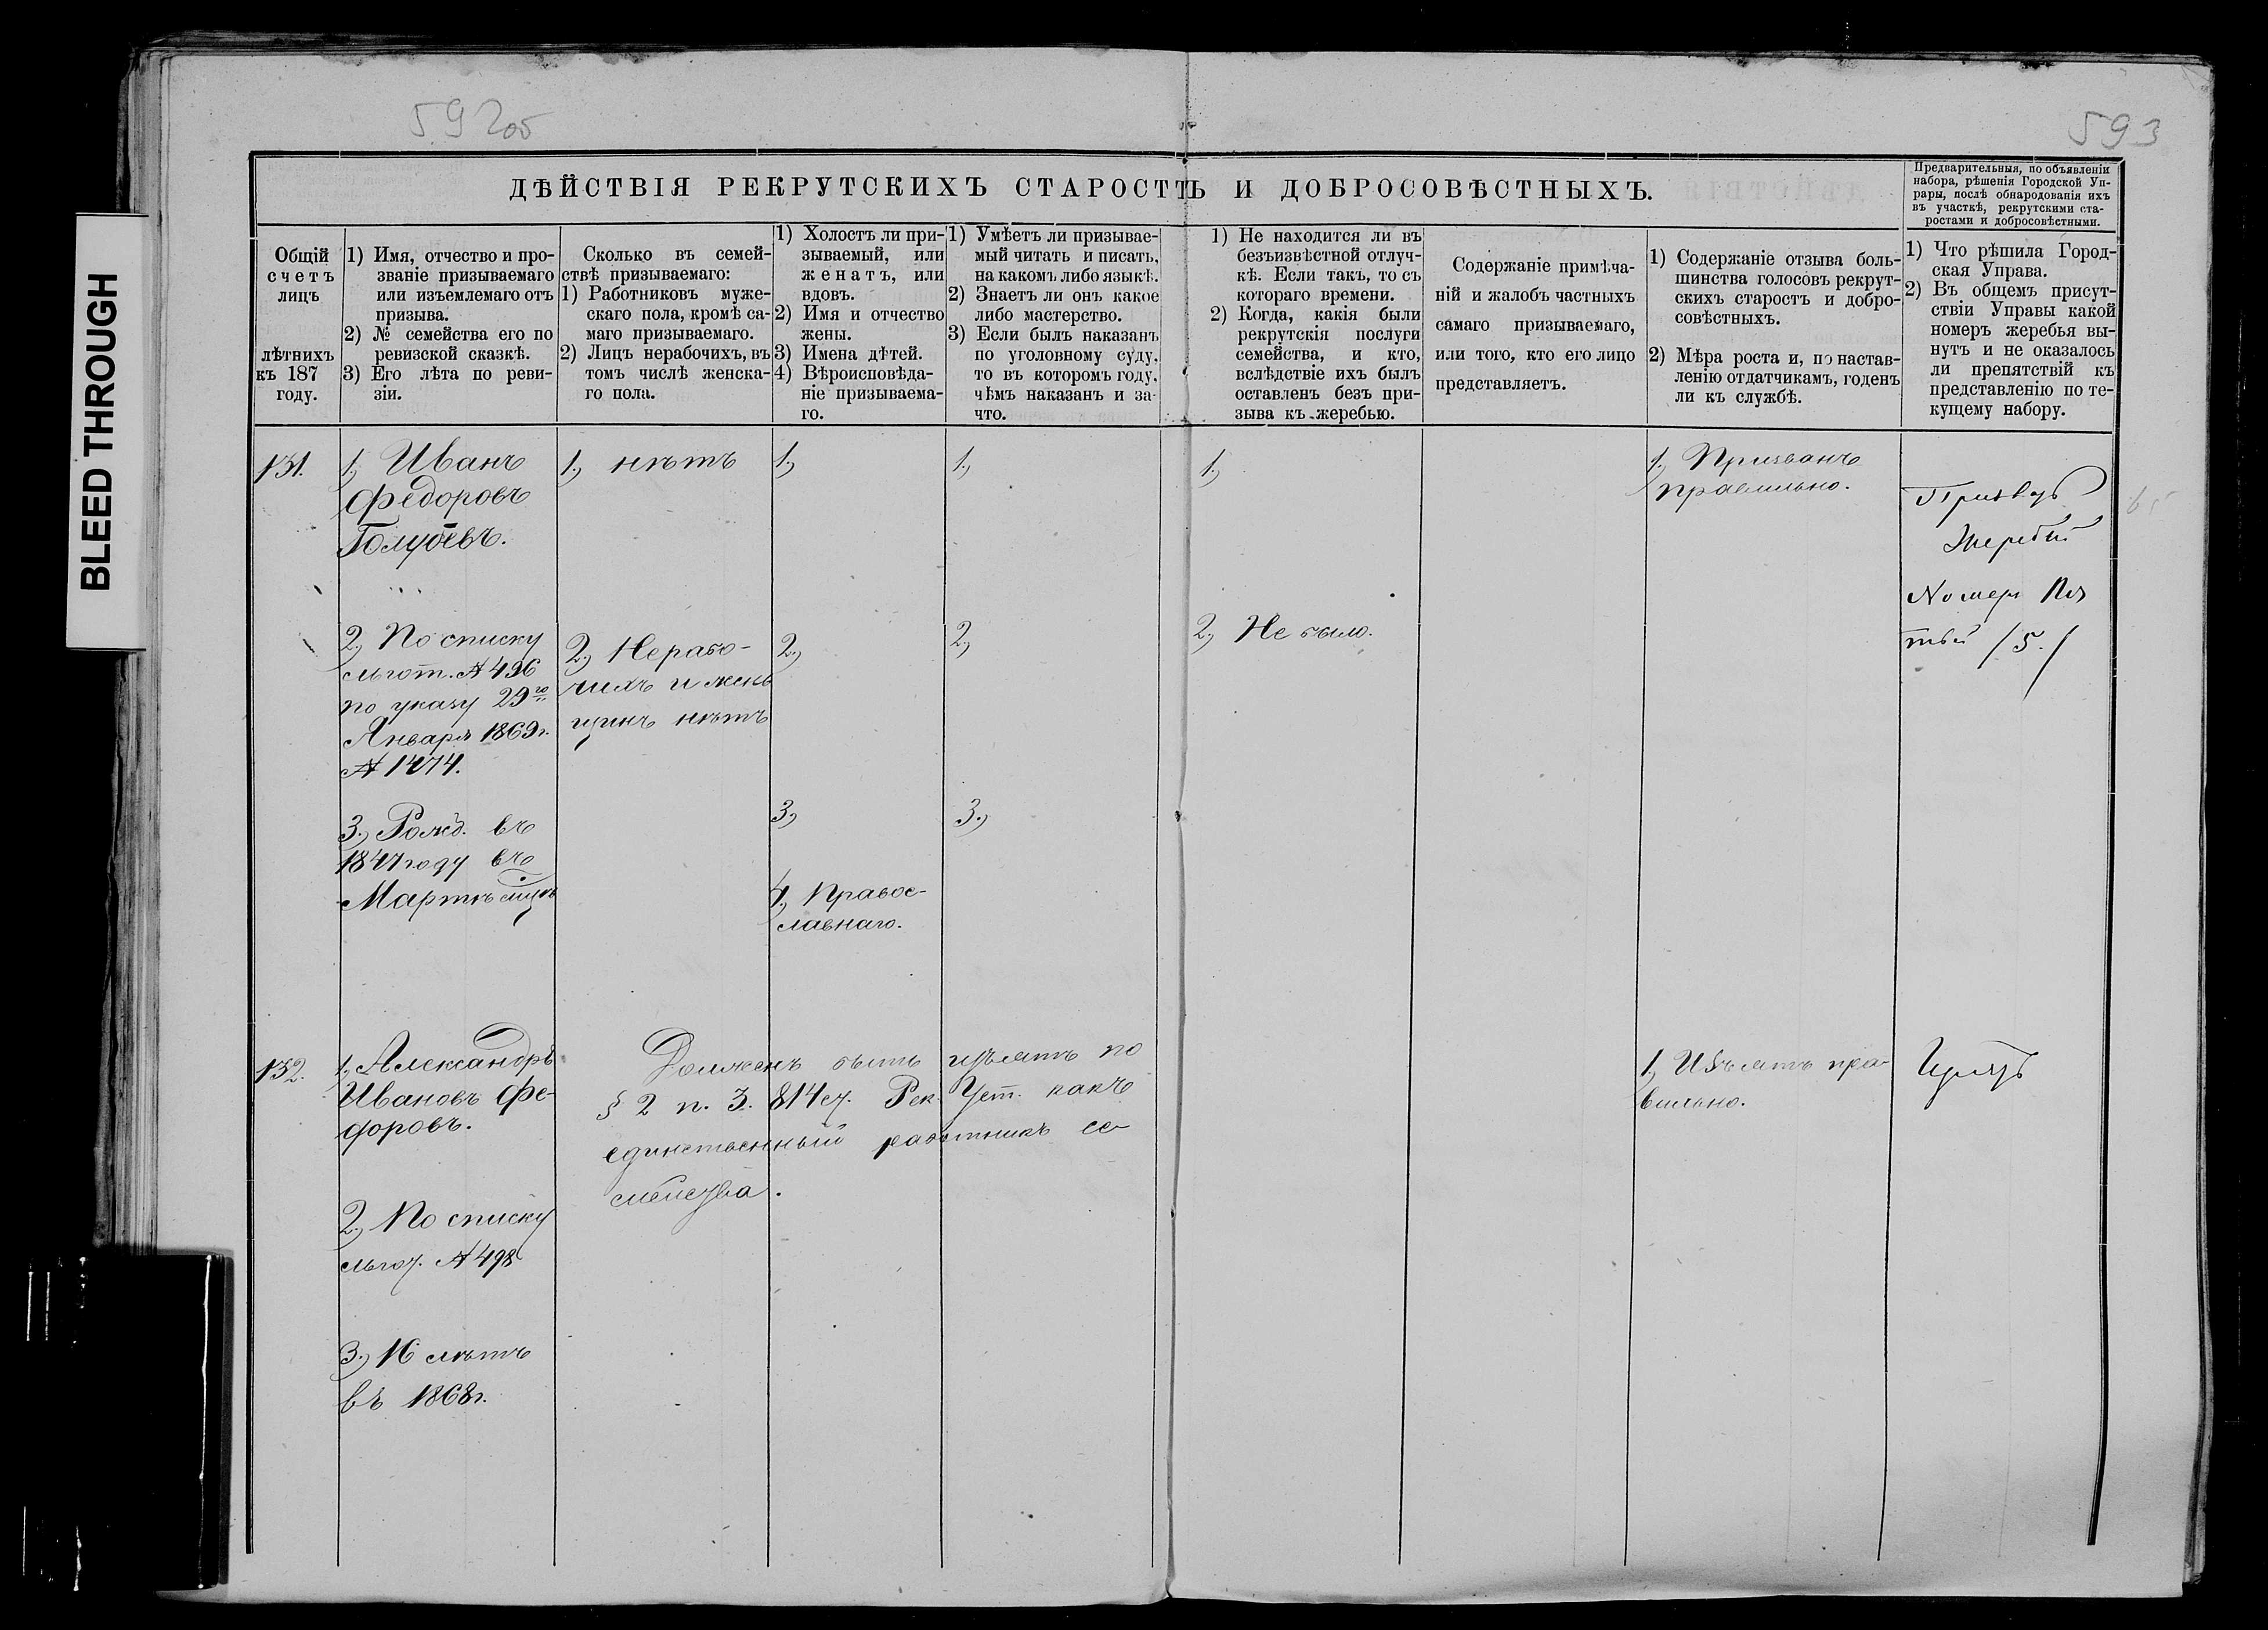 BLEED THROUGH
592об
593
ДѢЙСТВІЯ РЕКРУТСКИХЪ СТАРОСТЪ И ДОБРОСОВѢСТНЫХЪ.
Предварительныя, по объявленіи
набора, рѣшенія Городской Уп-
равы, послѣ обнародованія ихъ
въ участкѣ, рекрутскими ста-
ростами и добросовѣстными.
Общій
счетъ
лицъ
лѣтнихъ
къ 187
году.
1) Имя, отчество и про-
званіе призываемаго
или изъемлемаго отъ
призыва.
2) № семейства его по
ревизской сказкѣ.
3) Его лѣта по реви-
зіи.
Сколько въ семей-
ствѣ призываемаго:
1) Работниковъ муже-
скаго пола, кромѣ са-
маго призываемаго.
2) Лицъ нерабочихъ, въ
томъ числѣ женска-
го пола.
1) Холостъ ли при-
зываемый, или
женатъ, или
вдовъ.
2) Имя и отчество
жены.
3) Имена дѣтей.
4) Вѣроисповѣда-
ніе призываема-
го.
1) Умѣетъ ли призывае-
мый читать и писать,
на какомъ либо языкѣ.
2) Знаетъ ли онъ какое
либо мастерство.
3) Если былъ наказанъ
по уголовному суду,
то въ которомъ году,
чѣмъ наказанъ и за-
что.
1) Не находится ли въ
безъизвѣстной отлуч-
кѣ. Если такъ, то съ
котораго времени.
2) Когда, какія были
рекрутскія послуги
семейства, и кто,
вслѣдствіе ихъ былъ
оставленъ безъ при-
зыва къ жеребью.
Содержаніе примѣча-
ній и жалобъ частныхъ
самаго призываемаго,
или того, кто его лицо
представляетъ.
1) Содержаніе отзыва боль-
шинства голосовъ рекрут-
скихъ старостъ и добро-
совѣстныхъ.
2) Мѣра роста и, по настав-
ленію отдатчикамъ, годенъ
ли къ службѣ.
1) Что рѣшила Город-
ская Управа.
2) Въ общемъ присут-
ствіи Управы какой
номеръ жеребья вы-
нутъ и не оказалось
ли препятствій къ
представленію по те-
кущему набору.
131.
1., Иванъ
Федоровъ
Голубевъ.
2., По списку
льгот. № 496
по указу 29го
Января 1869г.
№ 1474.
3., Рожд. въ
1847 году въ
Мартѣ мцѣ
1., нѣтъ
2., Нерабо-
чихъ и жен-
щинъ нѣтъ
1.,
2.,
3.,
4., Правос-
лавнаго.
1.,
2.,
3.,
1.,
2., Не было.
1., Призванъ
правильно.
Жеребій
Номеръ Пя
тый /5./
132.
1., Александръ
Ивановъ Фе-
доровъ.
2., По списку
льгот. № 498
3., 16 лѣтъ
въ 1868г.
Долженъ быть изъятъ по
§ 2 п. 3. 814 ст. Рек. Уст. какъ
единственный работникъ се-
мейства.
1., Изъятъ пра-
вильно.